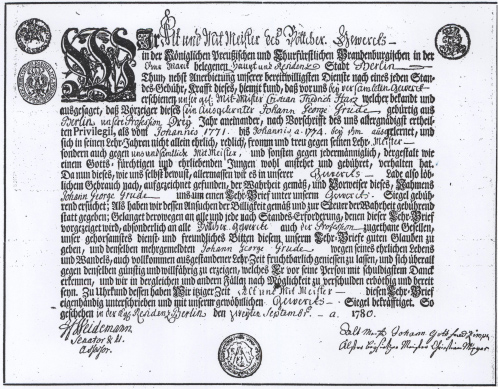 Wir Alt und Mit Meister des Böttcher Gewercks
in der Königlichen Preußischen und Churfürstlichen Brandenburgischen in der
Chur Marck belegenen Haupt und Residentz Stadt Berlin
Thun, nebst Anerbietung unserer bereitwilligsten Dienste nach eines jeden Stan-
des Gebühr, Krafft dieses, hiemit kund, daß vor uns bey versamleten Gewerck
erschienen unser Mit-Meister Friedrich welcher bekandt und
ausgesaget, daß Vorzeiger dieses sein ausgelernter Johann George Grude gebürtig aus
Berlin unsere Profession Drey Jahr aneinander, nach Vorschrifft des uns allergnädigst ertheil-
ten Privilegii, als von Johannis 1771. bis Johannis a. 1774. bey ihm ausgelernet, und
sich in seinen Lehr-Jahren nicht allein ehrlich, redlich, fromm und treu gegen seinen Lehr-Meister
sondern auch gegen uns Mit Meister, und sonsten gegen jedermänniglich, dergestalt wie
einem Gotts-fürchtigen und ehrliebenden Jungen wohl anstehet und gebühret, verhalten hat.
Da nun dieses, wie uns selbst bewust, allermassen wir es in unserer Gewercks-Lade also löb-
lichem Gebrauch nach, aufgezeichnet gefunden, der Wahrheit gemäß, und Vorweiser dieses, Nahmens
Johann George Grude uns um einen Lehr-Brief unter unserm Gewercks-Siegel gebüh-
rend ersuchet; Als haben wir dessen Ansuchen der Billigkeit gemäß und zur Steuer der Wahrheit gebührend
statt gegeben; Gelanget derowegen an alle und jede nach Standes-Erforderung, denen dieser Lehr-Brief
vorgezeiget wird, absonderlich an alle Böttcher Gewercke auch der Profession zugethane Gesellen,
unser gehorsamstes dienst- und freundliches Bitten, diesem unserm Lehr-Briefe guten Glauben zu
geben, und denselben mehrgemeldten Johann George Grude wegen seines ehrlichen Lebens
und Wandels, auch vollkommen ausgestandener Lehr-Zeit fruchtbarlich geniessen zu lassen, und sich überall
gegen denselben günstig und willfährig zu erzeigen, welches Er vor seine Person mit schuldigstem Danck
erkennen, und wir in dergleichen und andern Fällen nach Möglichkeit zu verschulden erböthig und bereit
seyn. Zu Uhrkund dessen haben Wir itziger Zeit Alt und Mit Meister diesen Lehr-Brief
eigenhändig unterschrieben und mit unserm gewöhnlichen Gewercks-Siegel bekräfftiget. So
geschehen in der Residentz Berlin den Zweyten September a. 1780.
Heidemann
Senator
Assessor.
Alt Meister Johann Gottfried
Meister Christian Meyer